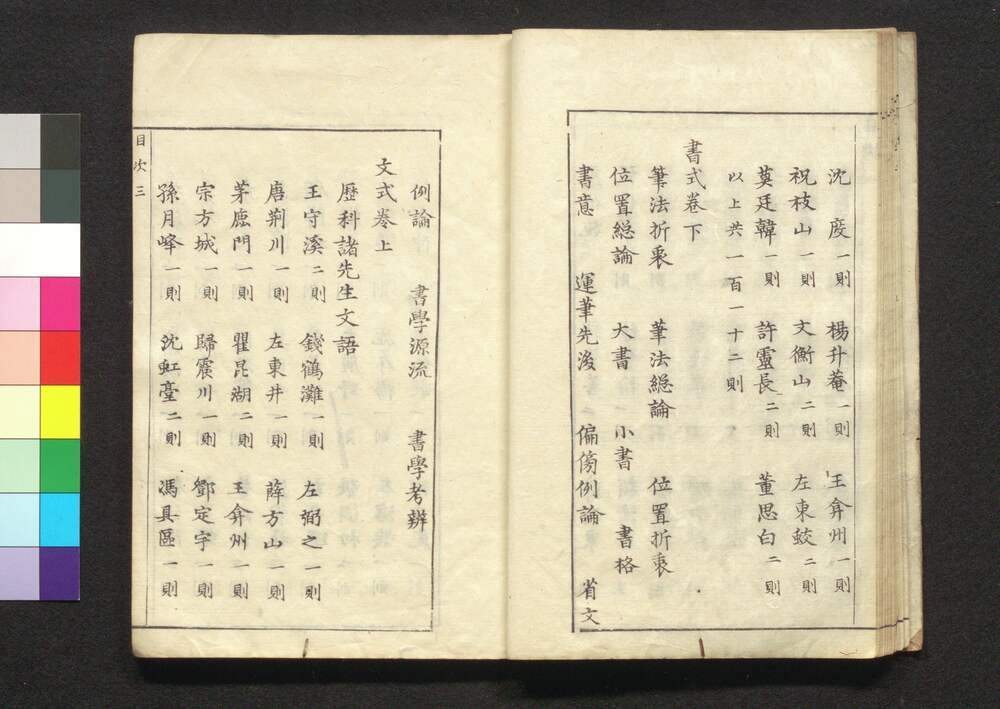 沈度一則　楊升菴一則　王弇州一則
祝枝山一則　文衡山二則　左東蛟二則
莫廷韓一則　許靈長二則　董思白二則
以上共一百一十二則
書式卷下
筆法折衷　筆法緫論　位置折衷
位置緫論　大書　小書　書格
書意　運筆先後　偏傍例論　省文
例論　書學源流　書學考辨
文式卷上
歷科諸先生文語
王守溪二則　錢鶴灘一則　左弼之一則
唐荆川一則　左東井一則　薛方山一則
茅鹿門一則　瞿昆湖二則　王弇州一則
宗方城一則　歸震川一則　鄧定宇一則
孫月峰一則　沈虹臺二則　馮具區一則
目次三